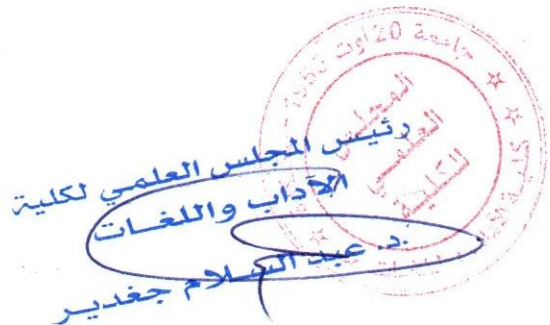 جامعة 20 أوت 1955
المجلس
العلمي
للكلية
رئيس المجلس العلمي لكلية
الآداب واللغات
د. عبد السلام جغدير